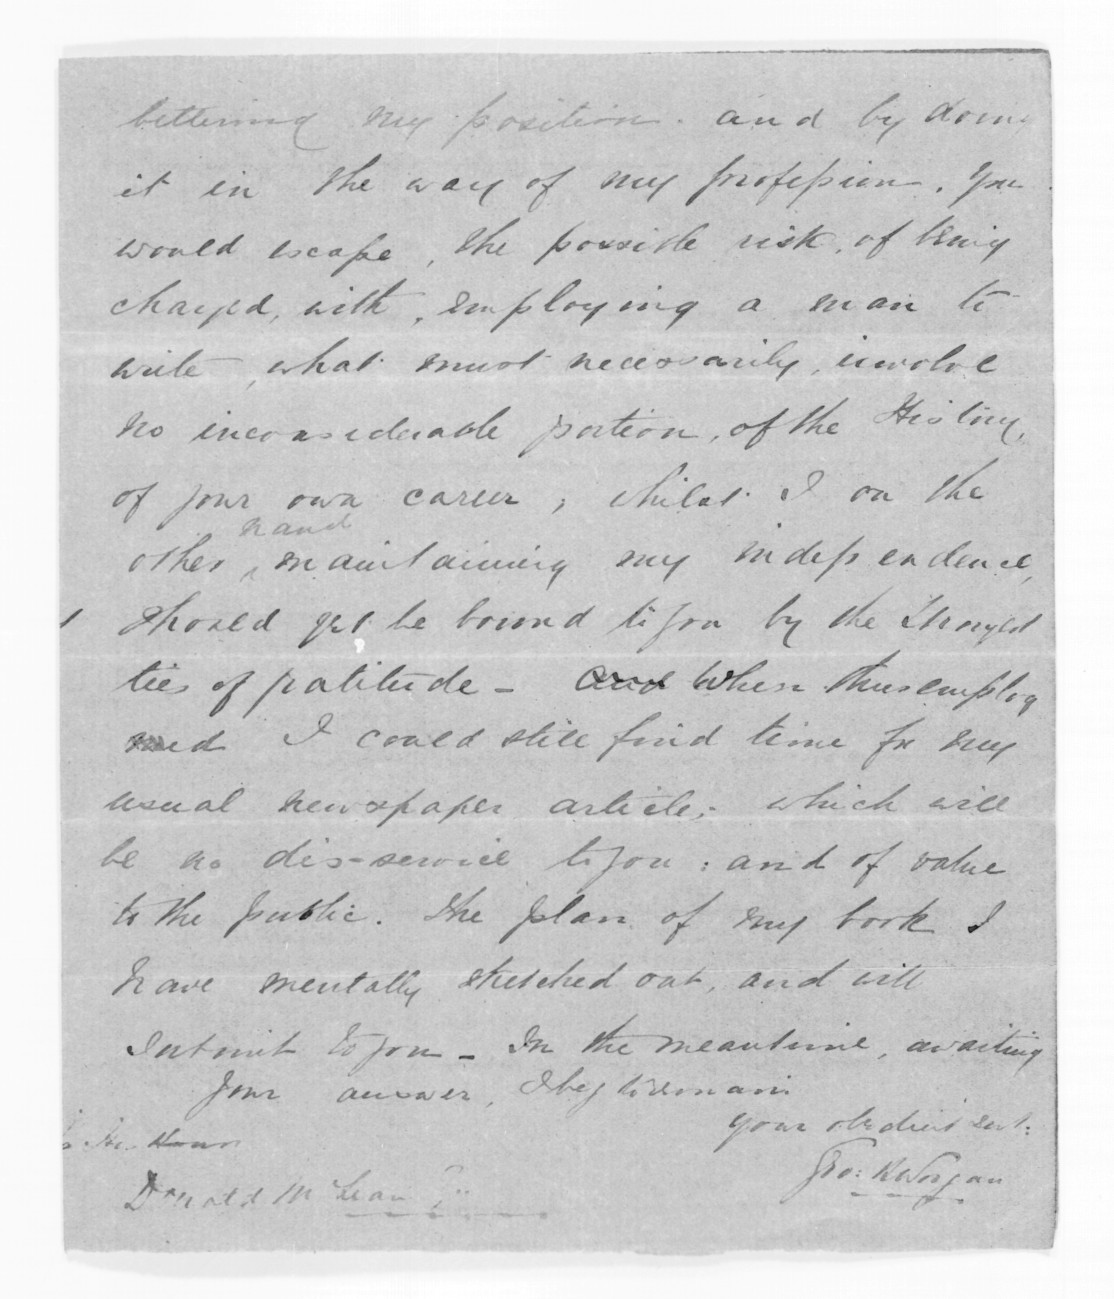 bettering my position. and by doing
it in the way of my profession. You
would escape, the possible risk, of being
charged, with, employing a man to
write, what must necessarily, involve
no inconsiderable portion, of the History,
of your own career; whilst I on the
hand
other, maintaining my independence,
should yet be bound to you by the strongest
ties of gratitude - and When thus employ
ed I could still find time for my
usual newspaper article; which will
be no dis-service to you: and of value
to the public. The plan of my book I
have mentally sketched out, and will
submit to you - In the meantime, awaiting
your answer, I beg to remain
your obedient Servt:
Geo: R Worgan
Donald McLean